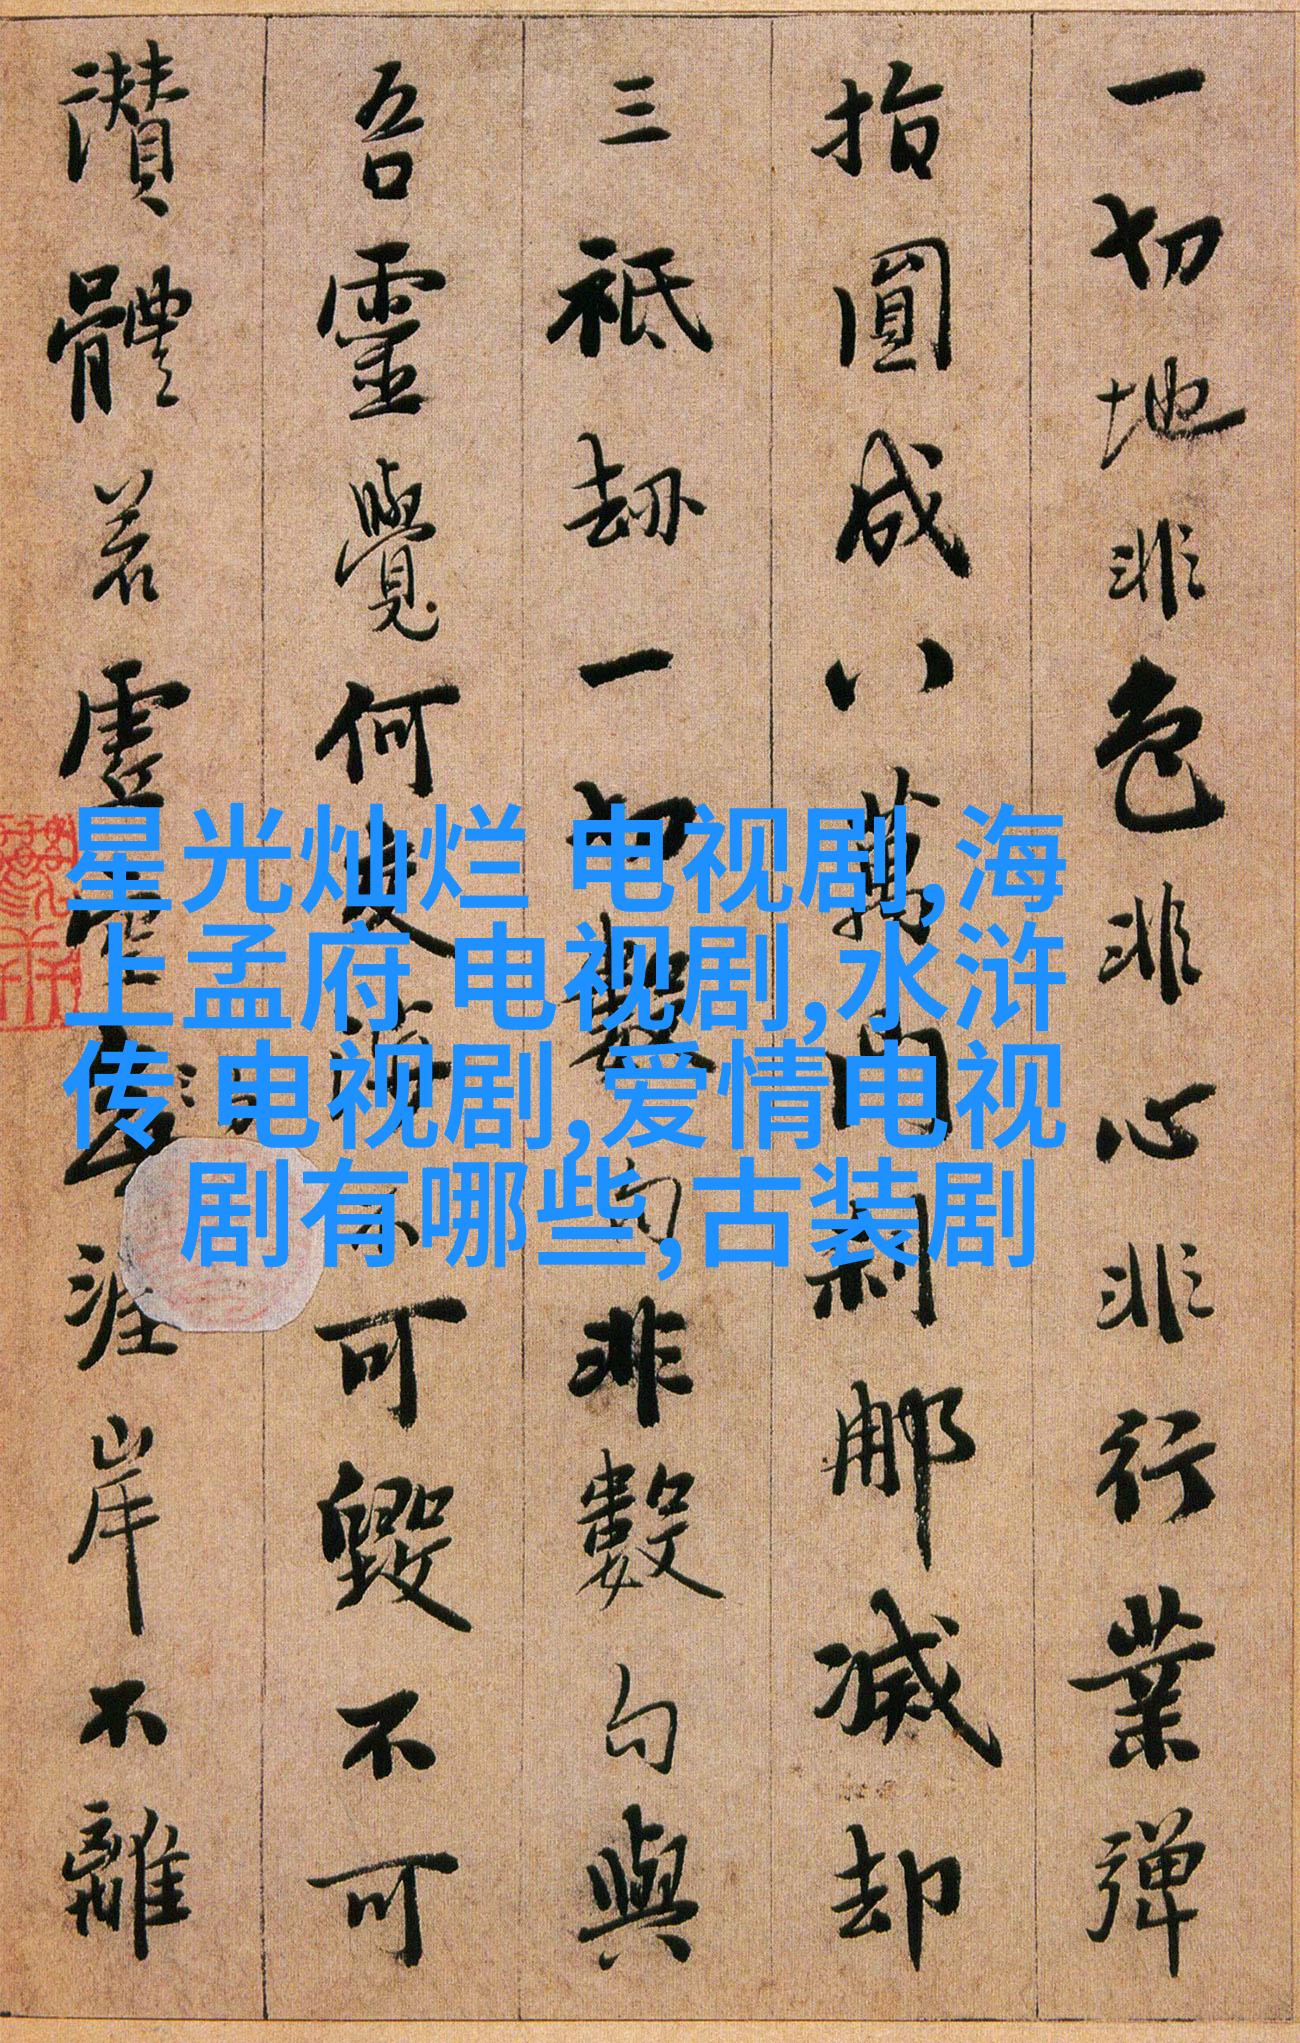 一切地非色非心非行業彈
指圓成八萬門剎那滅却
三祇劫一切數句非數句與
吾靈覺何交涉不可毀不可
讚體若虛空涯岸不離
星光灿烂 电视剧,海
上孟府 电视剧,水浒
传 电视剧,爱情电视
剧有哪些,古装剧